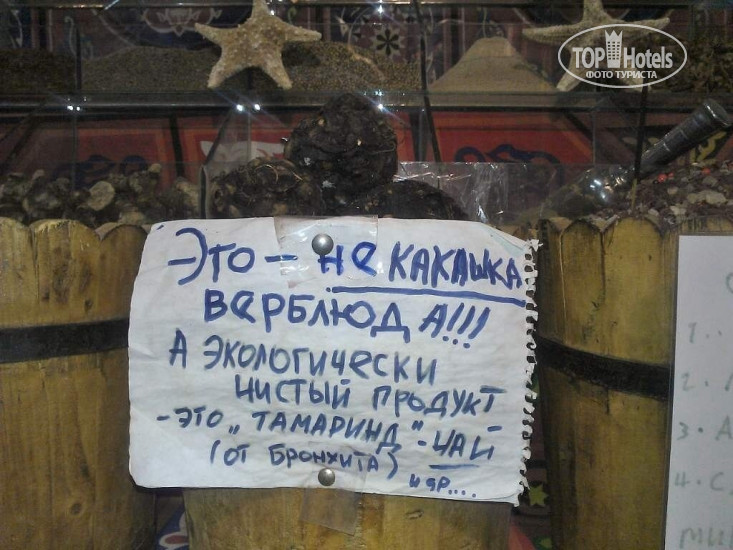 TOP Hotels
ФОТО ТУРИСТА
- Это - не КАКАШКА
ВерБЛЮДА!!!
А ЭКОЛОГИЧЕСКИ
ЧИСТЫЙ ПРОДУКТ
- ЭТО „ ТАМАРИНД " - ЧАЙ
(от БРОНХИТА)
и др....
1.
2.
3. А
4. С
МИ